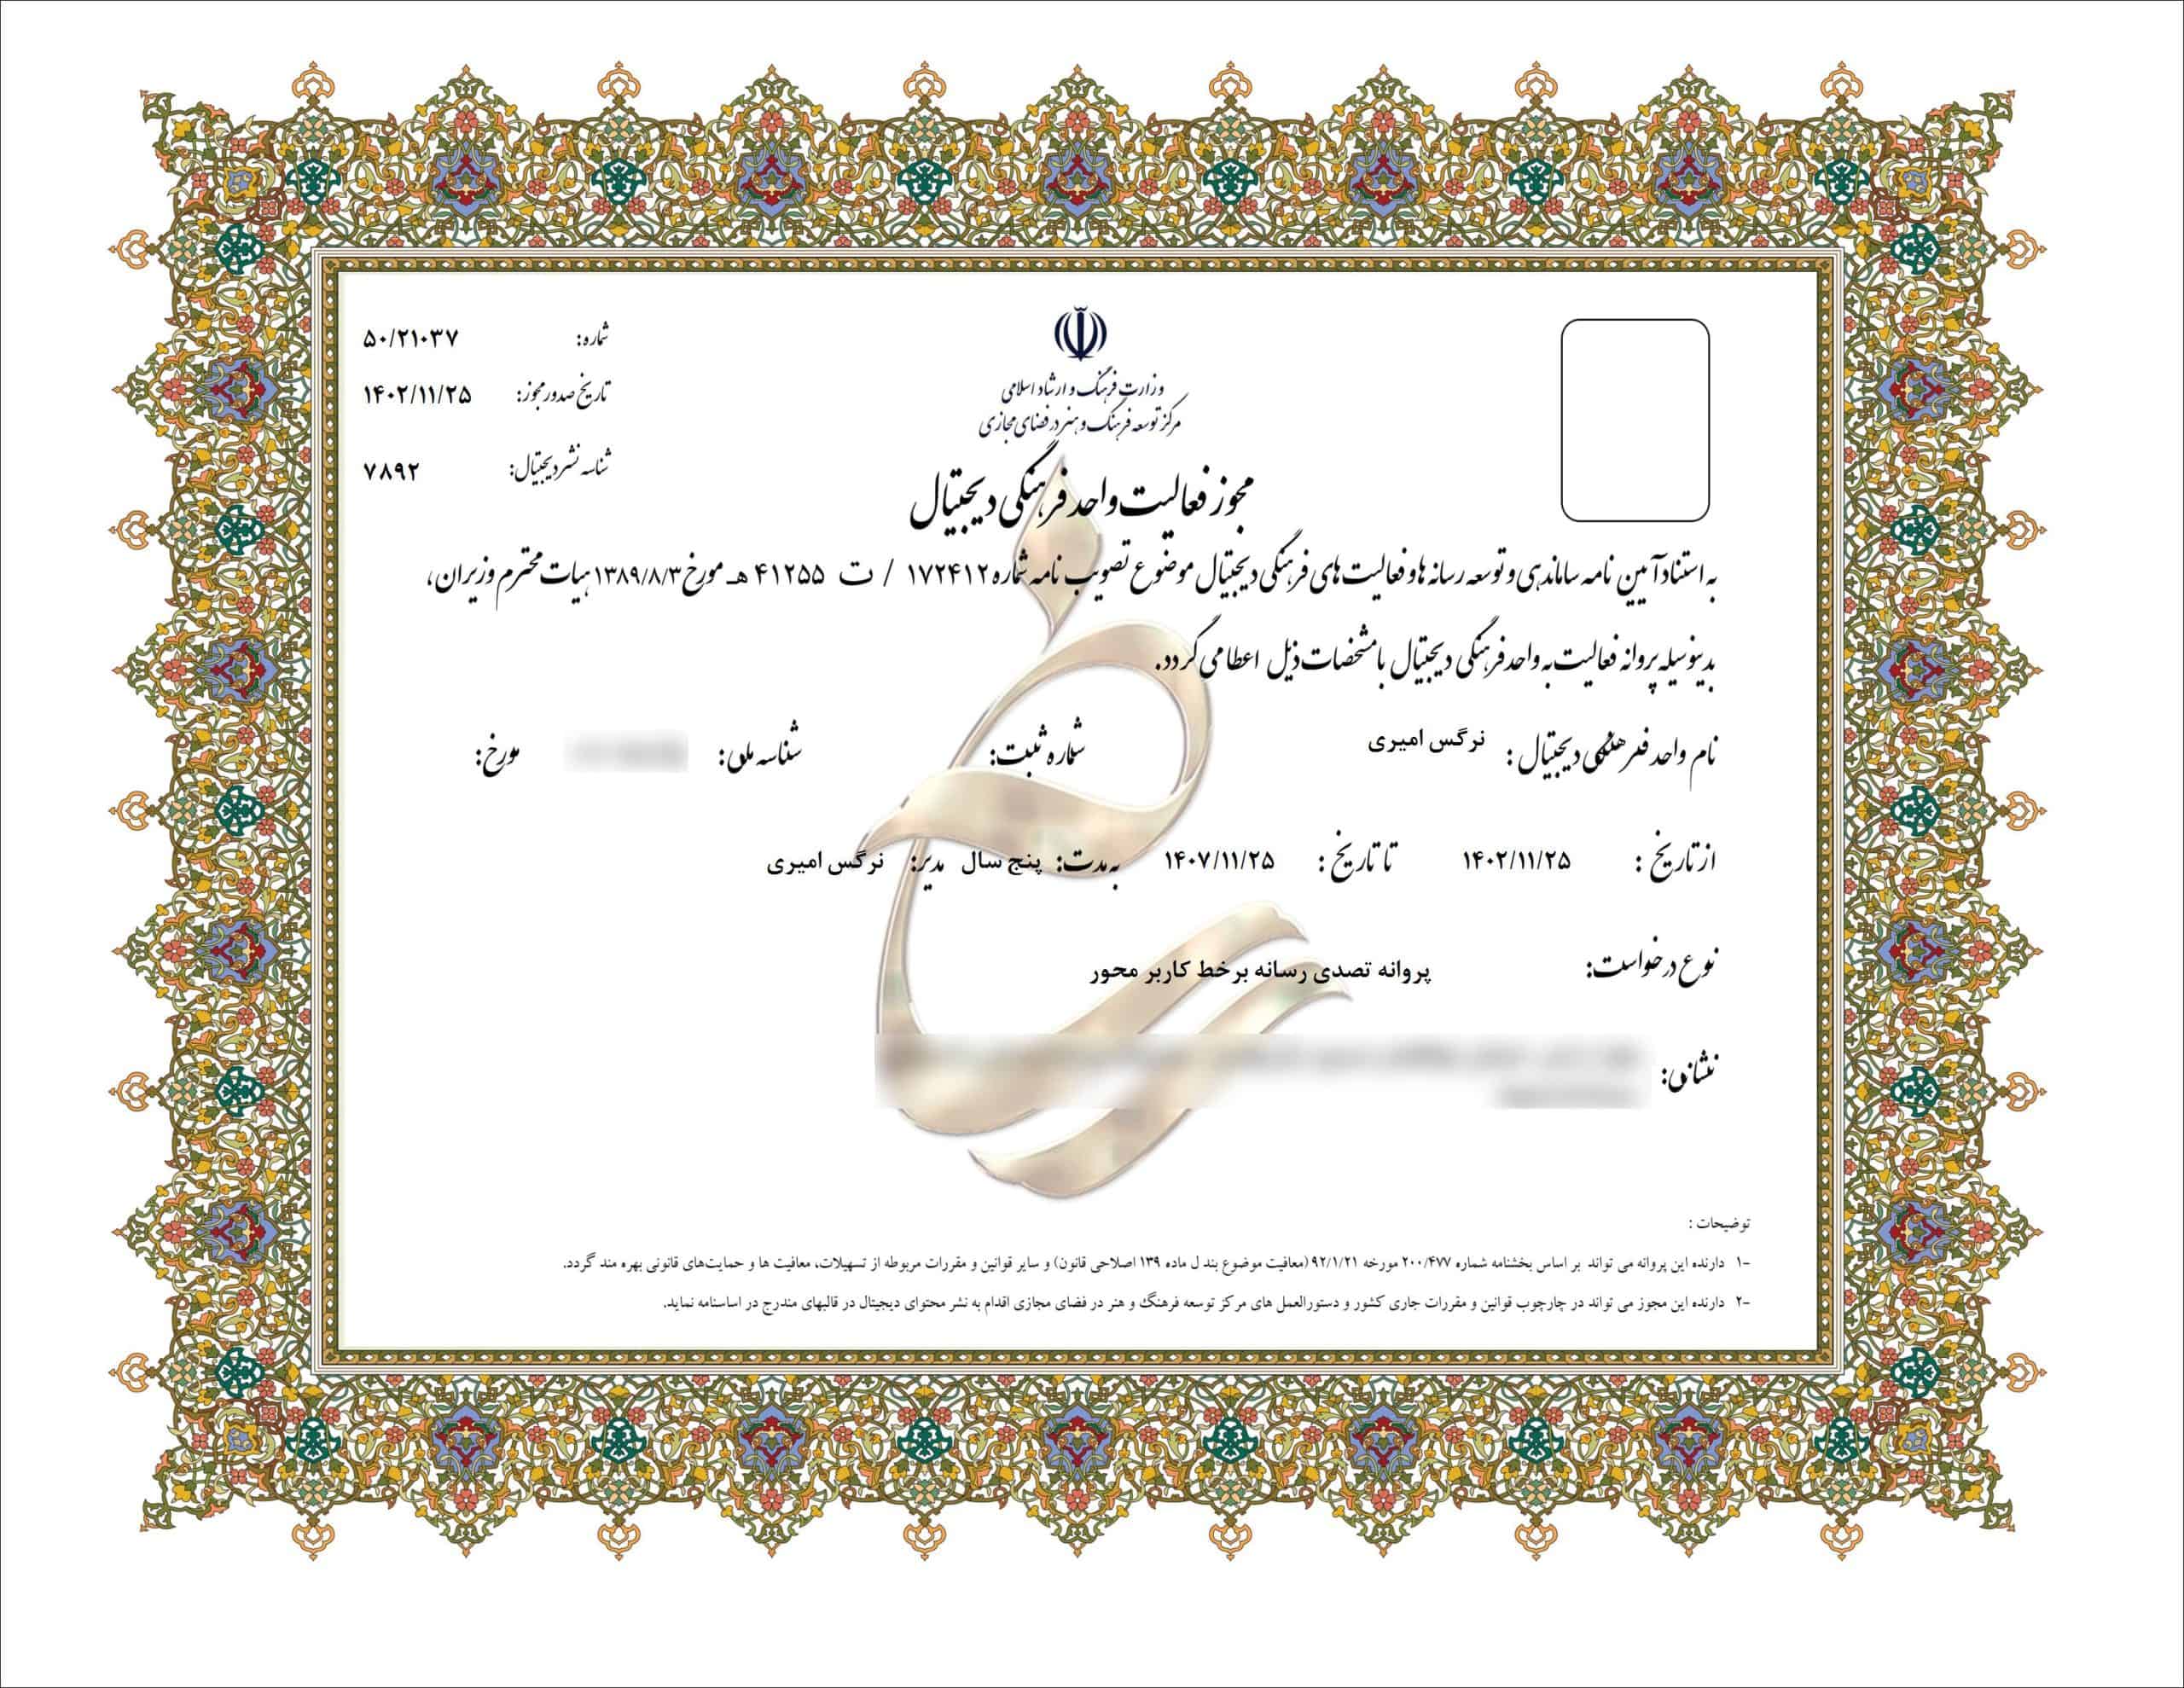 شماره: ۵۰/۲۱۰۳۷
تاریخ صدور مجوز: ۱۴۰۲/۱۱/۲۵
شناسه نشر دیجیتال: ۷۸۹۲
وزارت فرهنگ و ارشاد اسلامی
مرکز توسعه فرهنگ و هنر در فضای مجازی
مجوز فعالیت واحد فرهنگی دیجیتال
به استناد آیین نامه ساماندهی و توسعه رسانه ها و فعالیت های فرهنگی دیجیتال موضوع تصویب نامه شماره ۱۷۲۴۱۲ / ت ۴۱۲۵۵ هـ مورخ ۱۳۸۹/۸/۳ هیات محترم وزیران،
بدینوسیله پروانه فعالیت به واحد فرهنگی دیجیتال با مشخصات ذیل اعطا می گردد.
نام واحد فرهنگی دیجیتال : نرگس امیری شماره ثبت: شناسه ملی: مورخ:
از تاریخ : ۱۴۰۲/۱۱/۲۵ تا تاریخ : ۱۴۰۷/۱۱/۲۵ به مدت: پنج سال مدیر: نرگس امیری
نوع درخواست: پروانه تصدی رسانه برخط کاربر محور
نشانی:
توضیحات :
۱- دارنده این پروانه می تواند بر اساس بخشنامه شماره ۲۰۰/۴۷۷ مورخه ۹۲/۱/۲۱ (معافیت موضوع بند ل ماده ۱۳۹ اصلاحی قانون) و سایر قوانین و مقررات مربوطه از تسهیلات، معافیت ها و حمایت‌های قانونی بهره مند گردد.
۲- دارنده این مجوز می تواند در چارچوب قوانین و مقررات جاری کشور و دستورالعمل های مرکز توسعه فرهنگ و هنر در فضای مجازی اقدام به نشر محتوای دیجیتال در قالبهای مندرج در اساسنامه نماید.